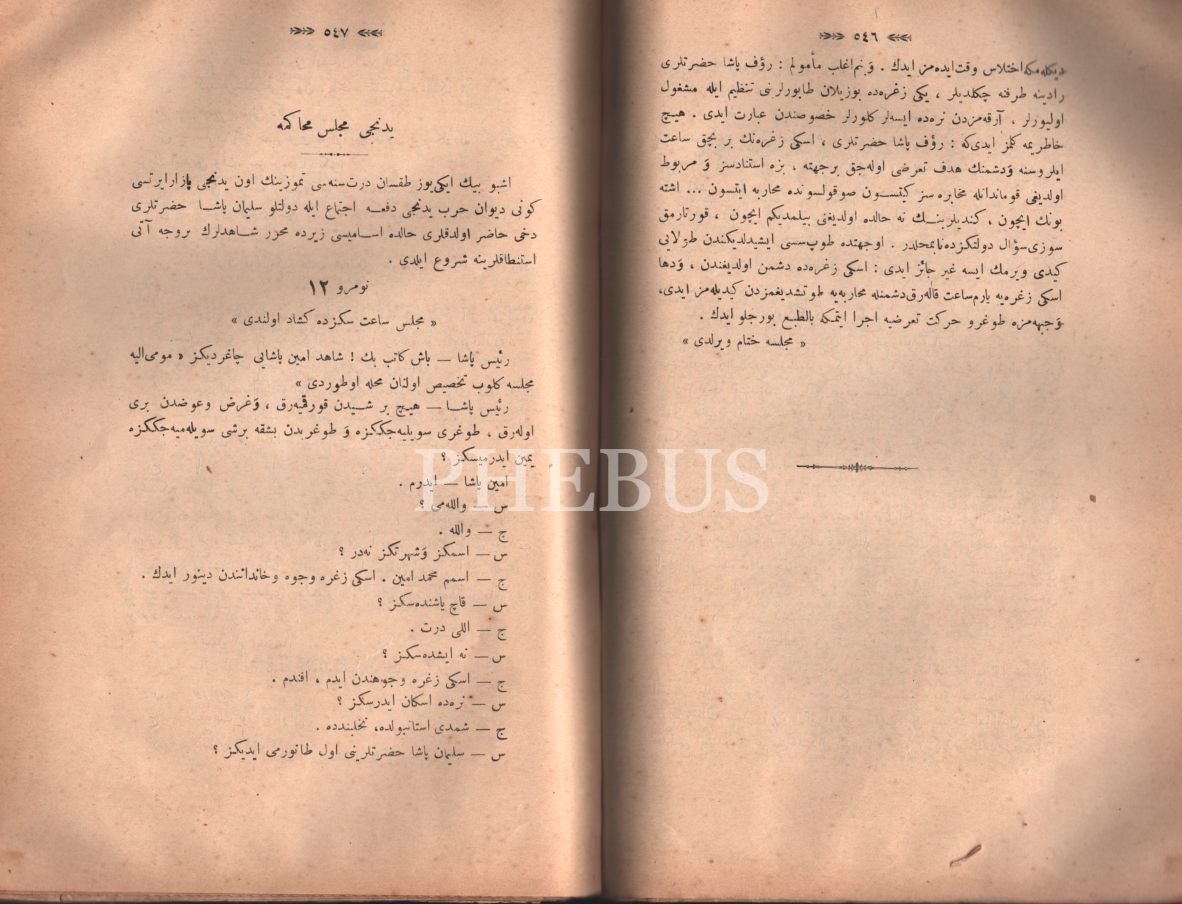 ٥٤٦
ديكله‌مكه اختلاس وقت ايده‌مز ايدك . وبنم اغلب مأمولم : رؤف پاشا حضرتلرى
رادينه طرفنه چكلديلر ، يكى زغره‌ده بوزيلان طابورلرنى تنظيم ايله مشغول
اوليورلر ، آرقه‌مزدن نره‌ده ايسه‌لر كلورلر خصوصندن عبارت ايدى . هيچ
خاطريمه كلمز ايدى‌كه : رؤف پاشا حضرتلرى ، اسكى زغره‌نك بر بچق ساعت
ايلروسنه ودشمنك هدف تعرضى اوله‌جق برجهته ، بزه استنادسز و مربوط
اولديغى قوماندانله مخابره سز كيتسون صوقولسونده محاربه ايتسون ... اشته
بونك ايچون ، كنديلرينك نه حالده اولديغنى بيلمديكم ايچون ، قورتارمق
سوزى سؤال دولتكزده نابمحلدر . اوجهتده طوپ سسى ايشيدلديكندن طولايى
كيدى ويرمك ايسه غير جائز ايدى : اسكى زغره‌ده دشمن اولديغندن ، ودها
اسكى زغره‌يه يارم ساعت قاله‌رق دشمنله محاربه‌يه طوتشديغمزدن كيديله‌مز ايدى،
وجبهه‌مزه طوغرو حركت تعرضيه اجرا ايتمكه بالطبع بورجلو ايدك .
« مجلسه ختام ويرلدى »
٥٤٧
يدنجى مجلس محاكمه
اشبو بيك ايكى يوز طقسان درت سنه‌سى تموزينك اون يدنجى پازار ايرتسى
كونى ديوان حرب يدنجى دفعه اجتماع ايله دولتلو سليمان پاشا حضرتلرى
دخى حاضر اولدقلرى حالده اساميسى زيرده محرر شاهدلرك بروجه آتى
استنطاقلرينه شروع ايلدى .
نومرو ١٢
« مجلس ساعت سكزده كشاد اولندى »
رئيس پاشا — باش كاتب بك ! شاهد امين پاشايى چاغرديكز « مومى اليه
مجلسه كلوب تخصيص اولنان محله اوطوردى »
رئيس پاشا — هيچ بر شيدن قورقميه‌رق ، وغرض وعوضدن برى
اوله‌رق ، طوغرى سويليه‌جككزه و طوغريدن بشقه برشى سويله‌ميه‌جككزه
يمين ايدرميسكز ؟
امين پاشا — ايدرم .
س — والله‌مى ؟
ج — والله .
س — اسمكز وشهرتكز نه‌در ؟
ج — اسمم محمد امين . اسكى زغره وجوه وخاندانندن دينور ايدك .
س — قاچ ياشنده‌سكز ؟
ج — اللى درت .
س — نه ايشده‌سكز ؟
ج — اسكى زغره وجوهندن ايدم ، افندم .
س — نره‌ده اسكان ايدرسكز ؟
ج — شمدى استانبولده، تحلبندده .
س — سليمان پاشا حضرتلرينى اول طانورمى ايديكز ؟
PHEBUS